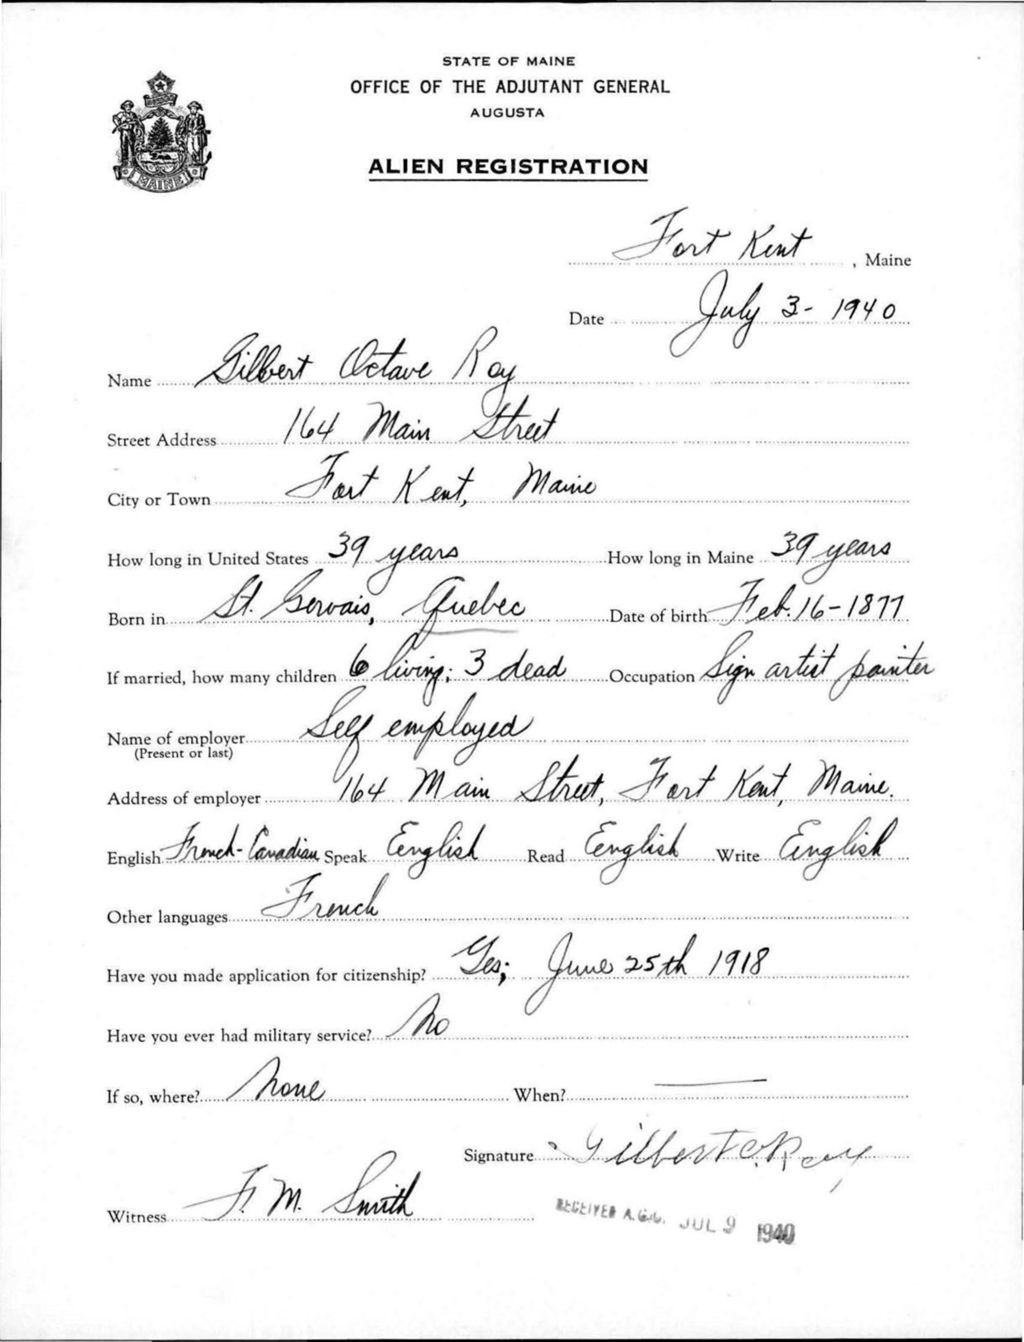 STATE OF MAINE
OFFICE OF THE ADJUTANT GENERAL
AUGUSTA
ALIEN REGISTRATION
MAINE
Fort Kent, Maine
Date July 3- 1940
Name Gilbert Octave Roy
Street Address 164 Main Street
City or Town Fort Kent, Maine
How long in United States 39 years How long in Maine 39 years
Born in St. Gervais, Quebec Date of birth Feb. 16-1877
If married, how many children 6 living; 3 dead Occupation Sign artist painter
Name of employer Self employed
(Present or last)
Address of employer 164 Main Street, Fort Kent, Maine.
English French-Canadian Speak English Read English Write English
Other languages French
Have you made application for citizenship? Yes; June 25th 1918
Have you ever had military service? No
If so, where? None When? —
Signature Gilbert O. Roy
Witness F. M. Smith
RECEIVED A.G.O. JUL 9 1940